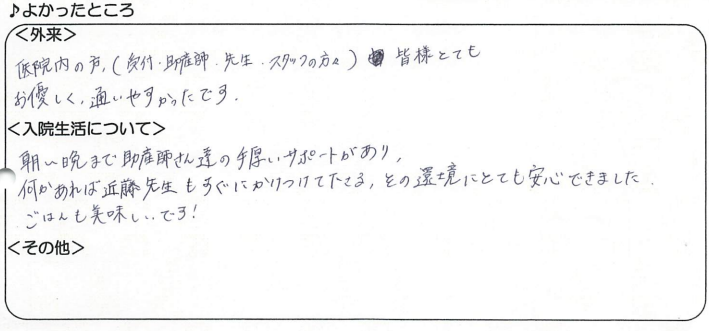 ♪よかったところ
<外来>
医院内の方,(受付・助産師・先生・スタッフの方々) 皆様とても
お優しく、通いやすかったです.
<入院生活について>
朝〜晩まで助産師さん達の手厚いサポートがあり,
何かあれば近藤先生もすぐにかけつけて下さる,その環境にとても安心できました.
ごはんも美味しいです!
<その他>